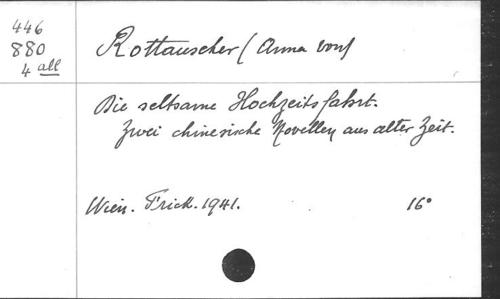 446
880
4 all
Rottauscher (Anna von)
Die seltsame Hochzeitsfahrt.
Zwei chinesische Novellen aus alter Zeit.
Wien. Frick. 1941. 16°